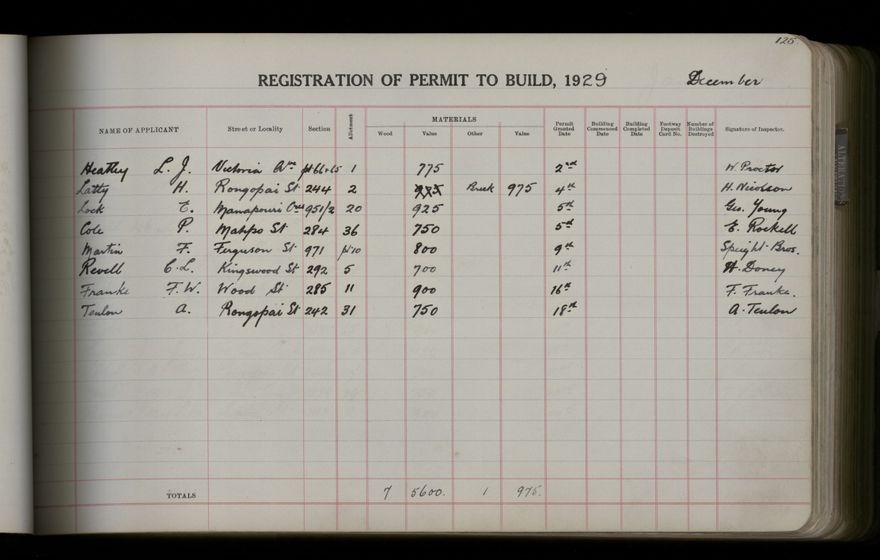 125
REGISTRATION OF PERMIT TO BUILD, 1929 December
NAME OF APPLICANT Street or Locality Section Allotment MATERIALS Wood Value Other Value Permit Granted Date Building Commenced Date Building Completed Date Footway Deposit Card No. Number of Buildings Destroyed Signature of Inspector.
Heatley L. J. Victoria Ave 1 775 2nd W. Proctor
Latty H. Rongopai St 244 2 Brick 975 4th H. Nicolson
Lock E. Manapouri Cres 951/2 20 925 5th Geo. Young
Cole P. Matipo St 284 36 750 5th E. Rockell
Martin F. Ferguson St 971 pt 10 800 9th Speight Bros.
Revell C. L. Kingswood St 292 5 700 11th H. Doney
Franke F. W. Wood St 285 11 900 16th F. Franke.
Tenlon A. Rongopai St 242 31 750 18th A. Tenlon
TOTALS 7 5600. 1 975.